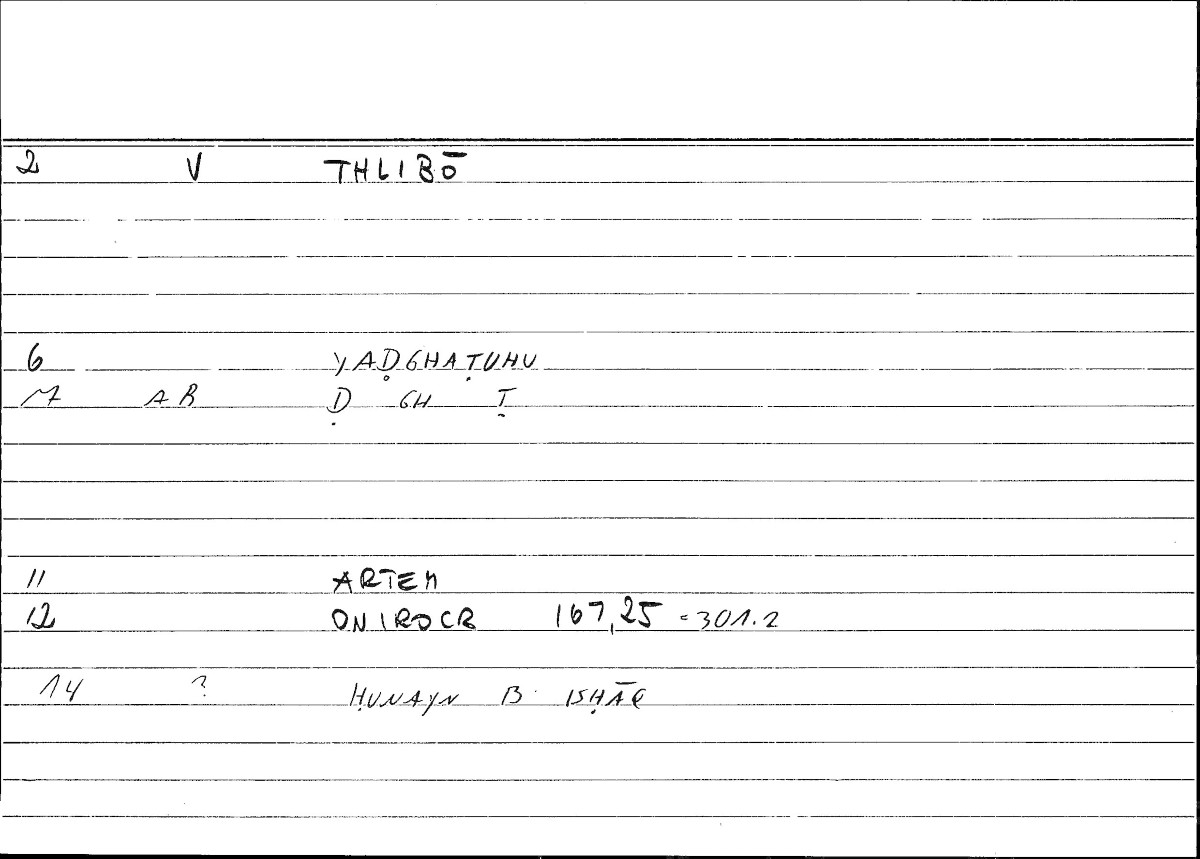 2 V THLIBŌ
6 YAḌGHAṬUHU
7 AB Ḍ GH Ṭ
11 ARTEM
12 ONIROCR 167,25 = 301.2
14 ? ḤUNAYN B. ISḤĀQ